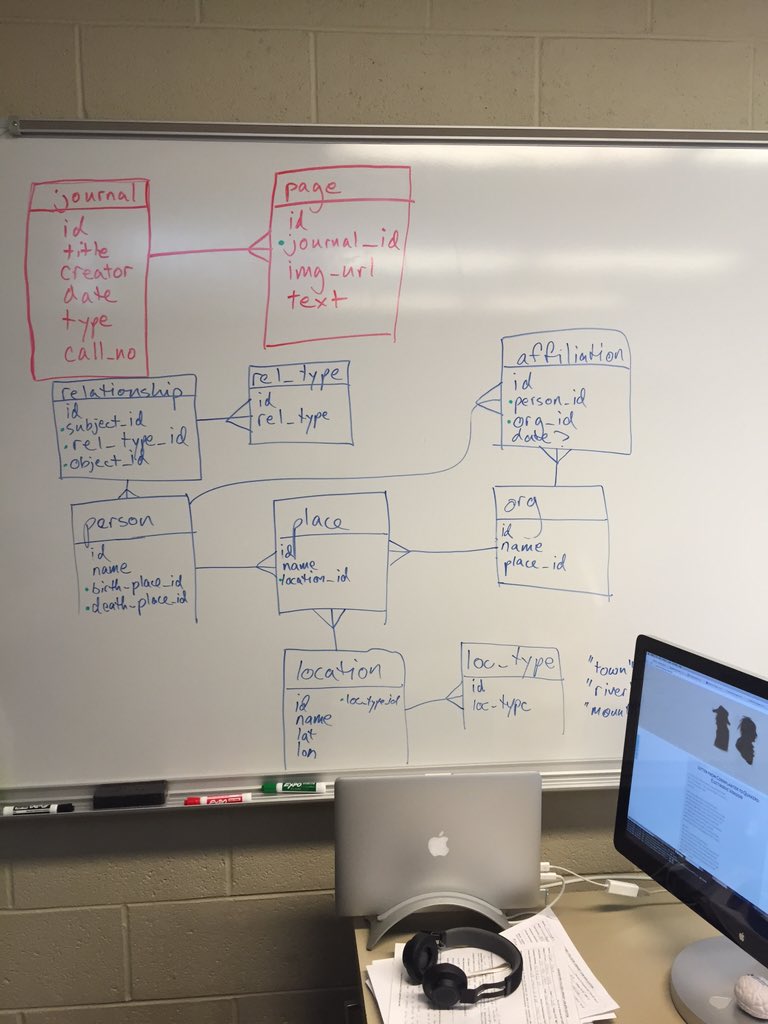 journal
id
title
creator
date
type
call_no
page
id
journal_id
img_url
text
relationship
id
subject_id
rel_type_id
object_id
rel_type
id
rel_type
affiliation
id
person_id
org_id
date?
person
id
name
birth_place_id
death_place_id
place
id
name
location_id
org
id
name
place_id
location
id
loc_type_id
name
lat
lon
loc_type
id
loc_type
"town"
"river
"moun
EXPO
EXPO